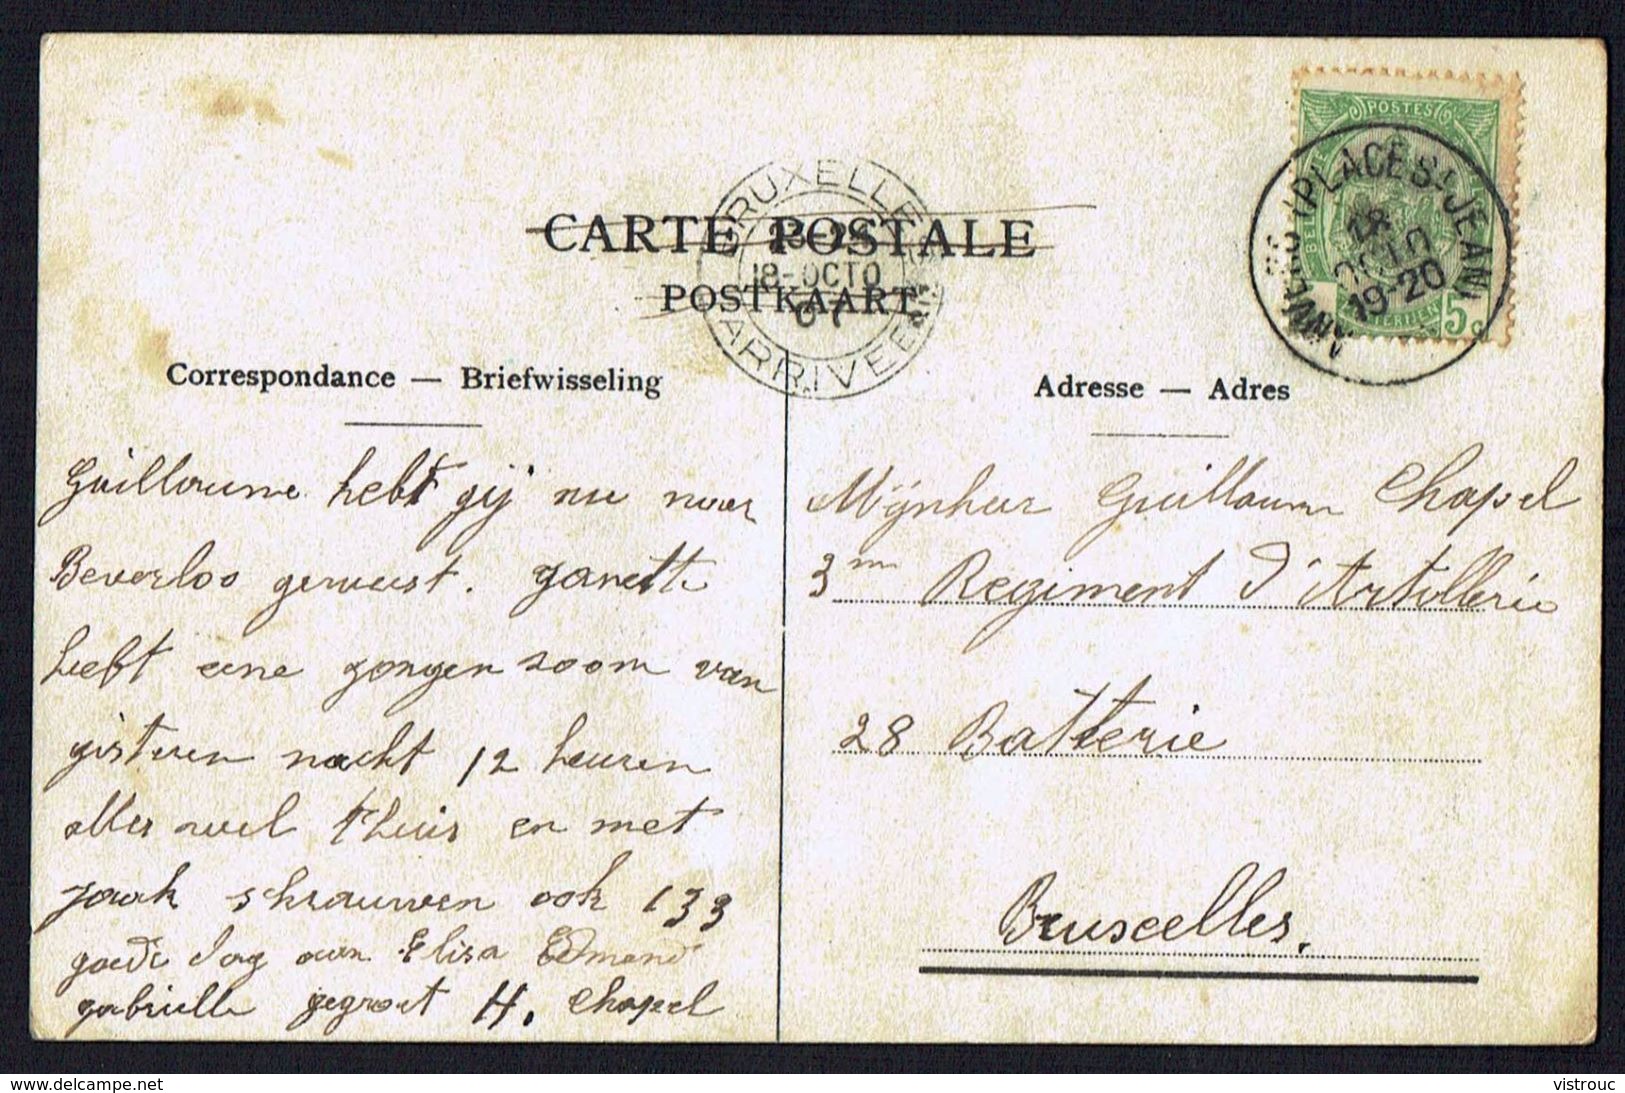 POSTES
BELGIQUE
5 c
ANVERS (PLACE St JEAN)
18
OCTO
19-20
BRUXELLES
18-OCTO
07
ARRIVEE
CARTE POSTALE
POSTKAART
Correspondance — Briefwisseling
Guillaume hebt gij nu naar
Beverloo geweest. Janette
hebt eene jongen zoom van
gisteren nacht 12 heuren
alles wel t'huis en met
Jaak Schrauwen ook 133
goede dag aan Elisa Edmond
gabrielle gegroet H. Chapel
Adresse — Adres
Mynheer Guillaume Chapel
3me Regiment d'Artillerie
28 Batterie
Bruxcelles.
vistrouc